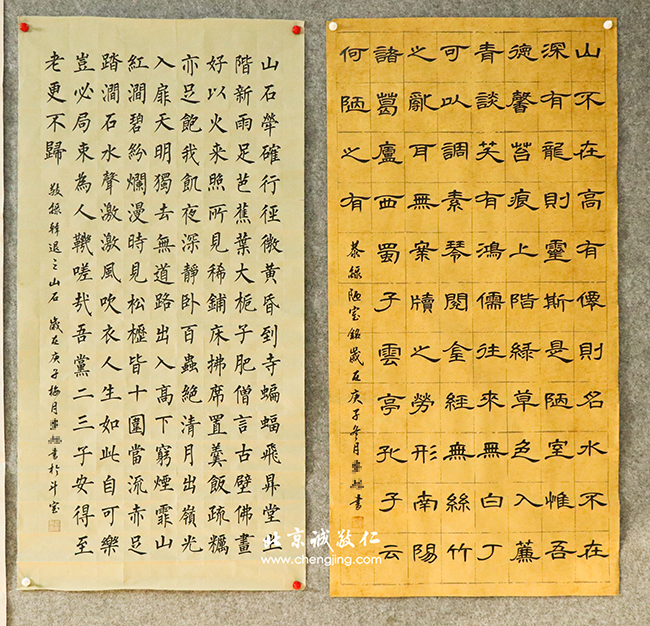 山不在高有僊則名水不在
深有龍則靈斯是陋室惟吾
德馨苔痕上階綠草色入簾
青談笑有鴻儒往來無白丁
可以調素琴閱金經無絲竹
之亂耳無案牘之勞形南陽
諸葛廬西蜀子雲亭孔子云
何陋之有
恭錄陋室銘歲在庚子冬月書
山石犖確行徑微黃昏到寺蝙蝠飛昇堂坐
階新雨足芭蕉葉大梔子肥僧言古壁佛畫
好以火来照所見稀鋪床拂席置羹飯疏糲
亦足飽我飢夜深靜卧百蟲絕清月出嶺光
入扉天明獨去無道路出入高下窮煙霏山
紅澗碧紛爛漫時見松櫪皆十圍當流赤足
踏澗石水聲激激風吹衣人生如此自可樂
豈必局束為人鞿嗟哉吾黨二三子安得至
老更不歸
敬錄韓退之山石 歲在庚子梅月書於斗室
北京诚敬仁
www.chengjing.com